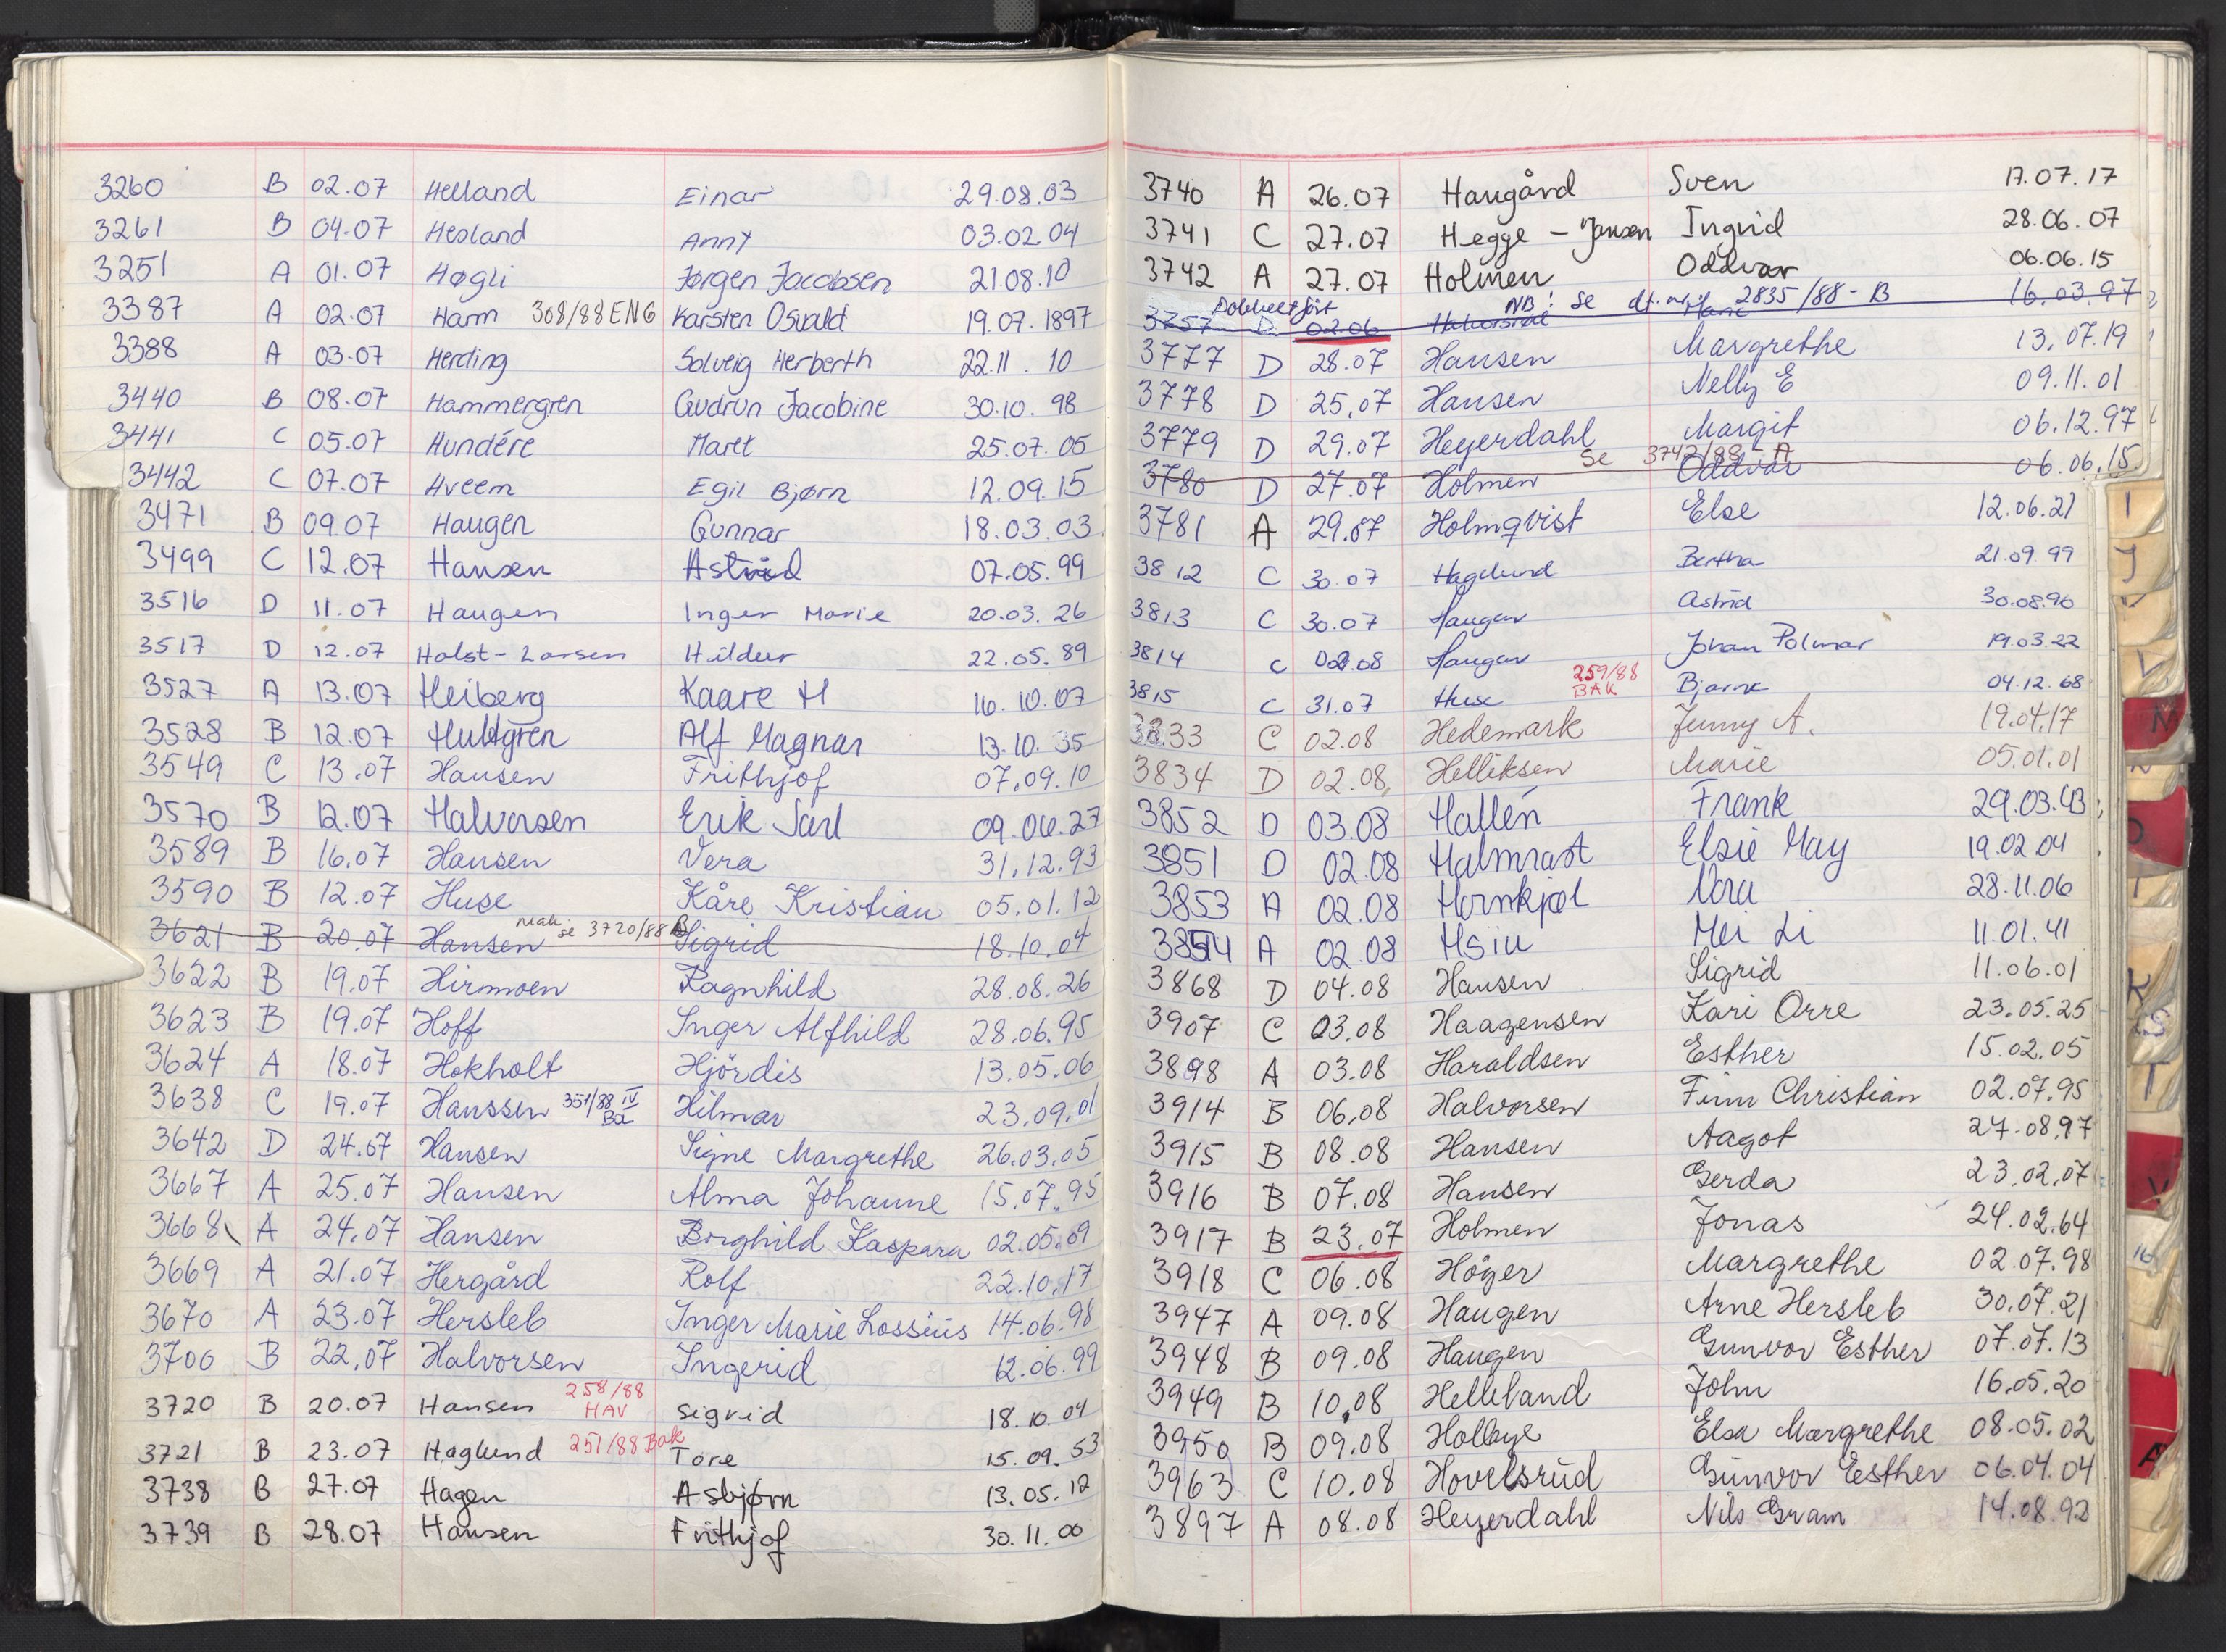 3260 B 02.07 Helland Einar 29.08.03
3261 B 04.07 Hesland Anny 03.02.04
3251 A 01.07 Høgli Jørgen Jacobsen 21.08.10
3387 A 02.07 Harm 308/88 ENG Karsten Osvald 19.07.1897
3388 A 03.07 Herding Solveig Herberth 22.11.10
3440 B 08.07 Hammergren Gudrun Jacobine 30.10.98
3441 C 05.07 Hundére Maret 25.07.05
3442 C 07.07 Hveem Egil Bjørn 12.09.15
3471 B 09.07 Haugen Gunnar 18.03.03
3499 C 12.07 Hansen Astrid 07.05.99
3516 D 11.07 Haugen Inger Marie 20.03.26
3517 D 12.07 Holst-Larsen Hildur 22.05.89
3527 A 13.07 Heiberg Kaare H 16.10.07
3528 B 12.07 Hultgren Alf Magnar 13.10.35
3549 C 13.07 Hansen Frithjof 07.09.10
3570 B 12.07 Halvorsen Erik Jarl 09.06.27
3589 B 16.07 Hansen Vera 31.12.93
3590 B 12.07 Huse Kåre Kristian 05.01.12
se 3720/88 B
3621 B 20.07 Hansen Sigrid 18.10.04
3622 B 19.07 Hirmoen Ragnhild 28.08.26
3623 B 19.07 Hoff Inger Alfhild 28.06.95
3624 A 18.07 Hokholt Hjördis 13.05.06
3638 C 19.07 Hanssen 351/88 IV Ba Hilmar 23.09.01
3642 D 24.07 Hansen Signe Margrethe 26.03.05
3667 A 25.07 Hansen Alma Johanne 15.07.95
3668 A 24.07 Hansen Borghild Kaspara 02.05.09
3669 A 21.07 Hergård Rolf 22.10.17
3670 A 23.07 Hersleb Inger Marie Lossius 14.06.98
3700 B 22.07 Halvorsen Ingerid 12.06.99
3720 B 20.07 Hansen 258/88 HAV Sigrid 18.10.04
3721 B 23.07 Haglund 251/88 Bak Tore 15.09.53
3738 B 27.07 Hagen Asbjørn 13.05.12
3739 B 28.07 Hansen Frithjof 30.11.00
3740 A 26.07 Haugård Sven 17.07.17
3741 C 27.07 Hegge - Jensen Ingrid 28.06.07
3742 A 27.07 Holmen Oddvar 06.06.15
Dobbeltført NB! se 2835/88-B
3757 D 02.06 16.03.97
3777 D 28.07 Hansen Margrethe 13.07.19
3778 D 25.07 Hansen Nelly E 09.11.01
3779 D 29.07 Heyerdahl Margit 06.12.97
Se 3742/88 - A
3780 D 27.07 Holmen Oddvar 06.06.15
3781 A 29.07 Holmqvist Else 12.06.21
3812 C 30.07 Hagelund Bertha 21.09.99
3813 C 30.07 Haugan Astrid 30.08.90
3814 C 02.08 Haugan Johan Polmar 19.03.22
3815 C 31.07 Huse 259/88 BAK Bjarne 04.12.68
3833 C 02.08 Hedemark Jenny A. 19.04.17
3834 D 02.08 Helliksen Marie 05.01.01
3852 D 03.08 Hallén Frank 29.03.43
3851 D 02.08 Halmrast Elsie May 19.02.04
3853 A 02.08 Hornkjøl Nora 28.11.06
3854 A 02.08 Hsiu Mei Li 11.01.41
3868 D 04.08 Hansen Sigrid 11.06.01
3907 C 03.08 Haagensen Kari Orre 23.05.25
3898 A 03.08 Haraldsen Esther 15.02.05
3914 B 06.08 Halvorsen Finn Christian 02.07.95
3915 B 08.08 Hansen Aagot 27.08.97
3916 B 07.08 Hansen Gerda 23.02.07
3917 B 23.07 Holmen Jonas 24.02.64
3918 C 06.08 Höyer Margrethe 02.07.98
3947 A 09.08 Haugen Arne Hersleb 30.07.21
3948 B 09.08 Haugen Gunvor Esther 07.07.13
3949 B 10.08 Helleland John 16.05.20
3950 B 09.08 Holbye Elsa Margrethe 08.05.02
3963 C 10.08 Hovelsrud Gunvor Esther 06.04.04
3897 A 08.08 Heyerdahl Nils Gram 14.08.92
I
J
M
K
S
T